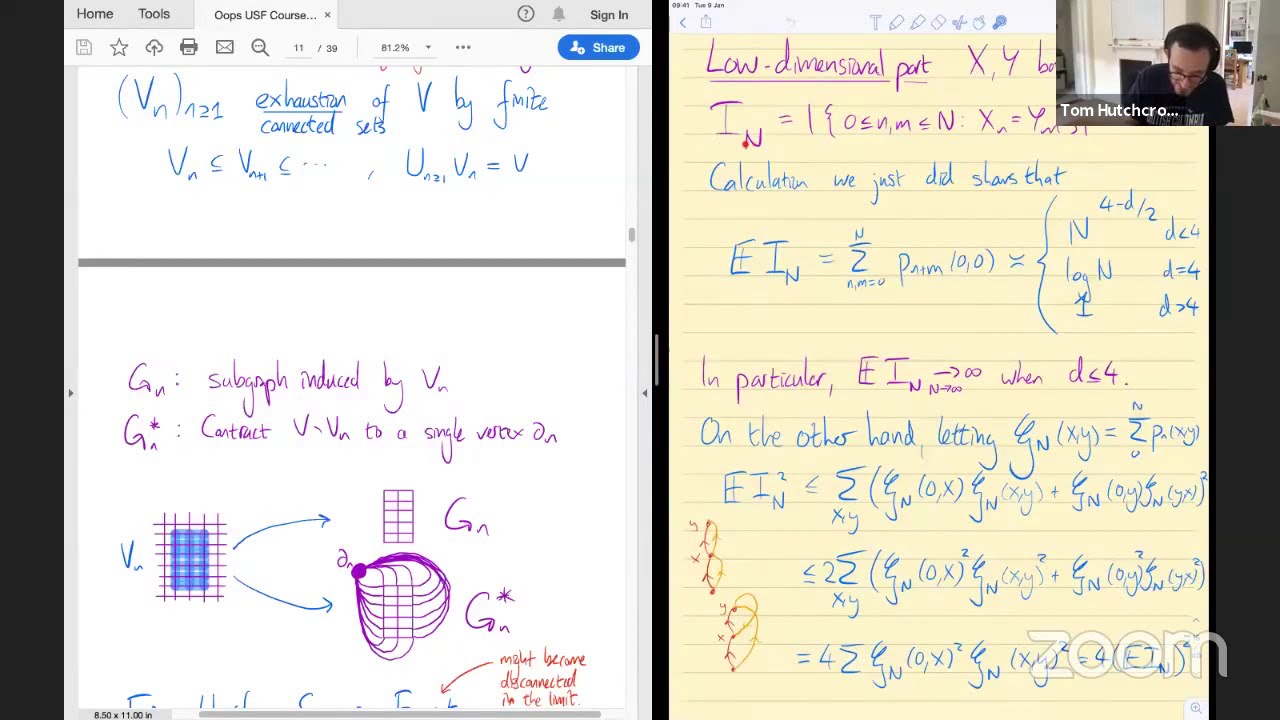 Home Tools Oops USF Course... × Sign In
11 / 39 81.2% Share
(Vₙ)ₙ≥₁ exhaustion of V by finite
connected sets
Vₙ ⊆ Vₙ₊₁ ⊆ ⋯ , ∪ₙ≥₁ Vₙ = V
Gₙ: subgraph induced by Vₙ
Gₙ*: Contract V∖Vₙ to a single vertex ∂ₙ
Gₙ
Vₙ
∂ₙ
Gₙ*
might become
disconnected
in the limit.
8.50 x 11.00 in
09:41 Tue 9 Jan
Tom Hutchcro...
Low-dimensional part X, Y
I_N = |{0≤n,m≤N: Xₙ = Yₘ}|
Calculation we just did shows that
E I_N = Σ_{n,m=0}^N p_{n+m}(0,0) ≍ { N^{4-d/2} d<4
log N d=4
1 d>4
In particular, E I_N →∞ N→∞ when d≤4.
On the other hand, letting G_N(x,y) = Σ_0^N pₙ(x,y)
E I_N² ≤ Σ_{x,y} (G_N(0,x) G_N(x,y) + G_N(0,y) G_N(y,x))²
y
x
≤ 2 Σ_{x,y} (G_N(0,x)² G_N(x,y)² + G_N(0,y)² G_N(y,x)²)
y
x
= 4 Σ G_N(0,x)² G_N(x,y)² = 4 (E I_N)²
zoom